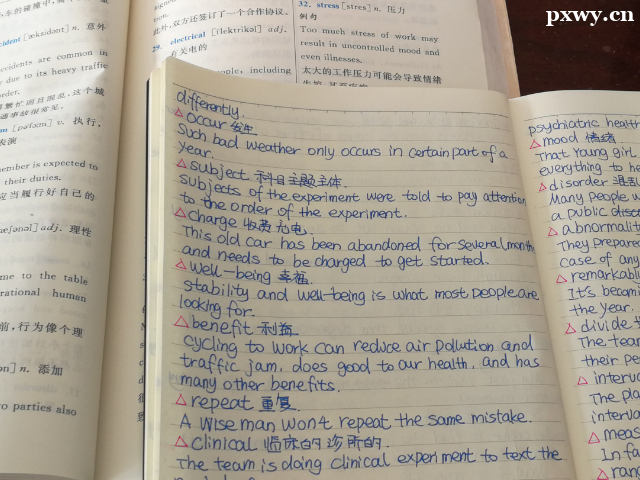 pxwy.cn
车的碰撞中,
cident [ˈæksidənt] n. 意外
accidents are common in
due to its heavy traffic
order.
perform [pəˈfɔːm] v. 执行,
表演
member is expected to
their duties.
应当履行好自己的
adj. 理性
come to the table
rational human
前,行为像个理
n. 添加
two parties also
此外,双方还签订了一个合作协议。
29. electrical [iˈlektrikəl] adj.
有关电的
people, including
32. stress [stres] n. 压力
例句
Too much stress of work may
result in uncontrolled mood and
even illnesses.
太大的工作压力可能会导致情绪
differently.
△occur 发生
Such bad weather only occurs in certain part of a
year.
△subject 科目主题主体
subjects of the experiment were told to pay attention
to the order of the experiment.
△charge 收费充电
This old car has been abandoned for several months
and needs to be charged to get started.
△well-being 幸福
stability and well-being is what most people are
looking for.
△benefit 利益
cycling to work can reduce air pollution and
traffic jam, does good to our health, and has
many other benefits.
△repeat 重复
A wise man won't repeat the same mistake.
△clinical 临床的 诊所的
The team is doing clinical experiment to text the
psychiatric health
△mood 情绪
That young girl
everything to he
△disorder 混乱
Many people w
a public disco
△abnormality
They prepared
case of any
△remarkable
It's becoming
the year.
△divide
The team
their pe
△interval
The pla
interval
△meas
In fa
△rang